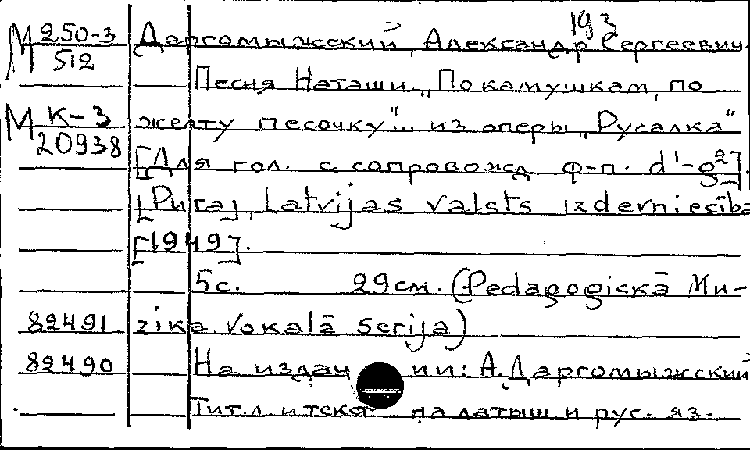 193
М 250-3 Даргомыжский, Александр Сергеевич
512
Песня Наташи „По камушкам, по
М К-3 желту песочку"... из оперы „Русалка"
20938 [Для гол. с сопровожд ф-п. d¹-g²].
[Рига], Latvijas valsts izdevniecība
[1949].
5с. 29см. (Pedagogiskā Mu-
82491 zika. Vokalā serija)
82490 На издании: А. Даргомыжский
Тит. л. и текст на латыш и рус. яз.